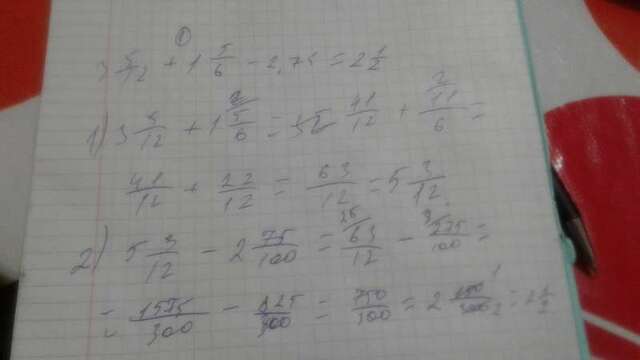 3 5/12 + 1 5/6 - 2,75 = 2 1/2
1) 3 5/12 + 1 5/6 = 41/12 + 11/6 =
41/12 + 22/12 = 63/12 = 5 3/12
2) 5 3/12 - 2 75/100 = 63/12 - 275/100 =
= 1575/300 - 825/300 = 750/300 = 2 150/300 = 2 1/2